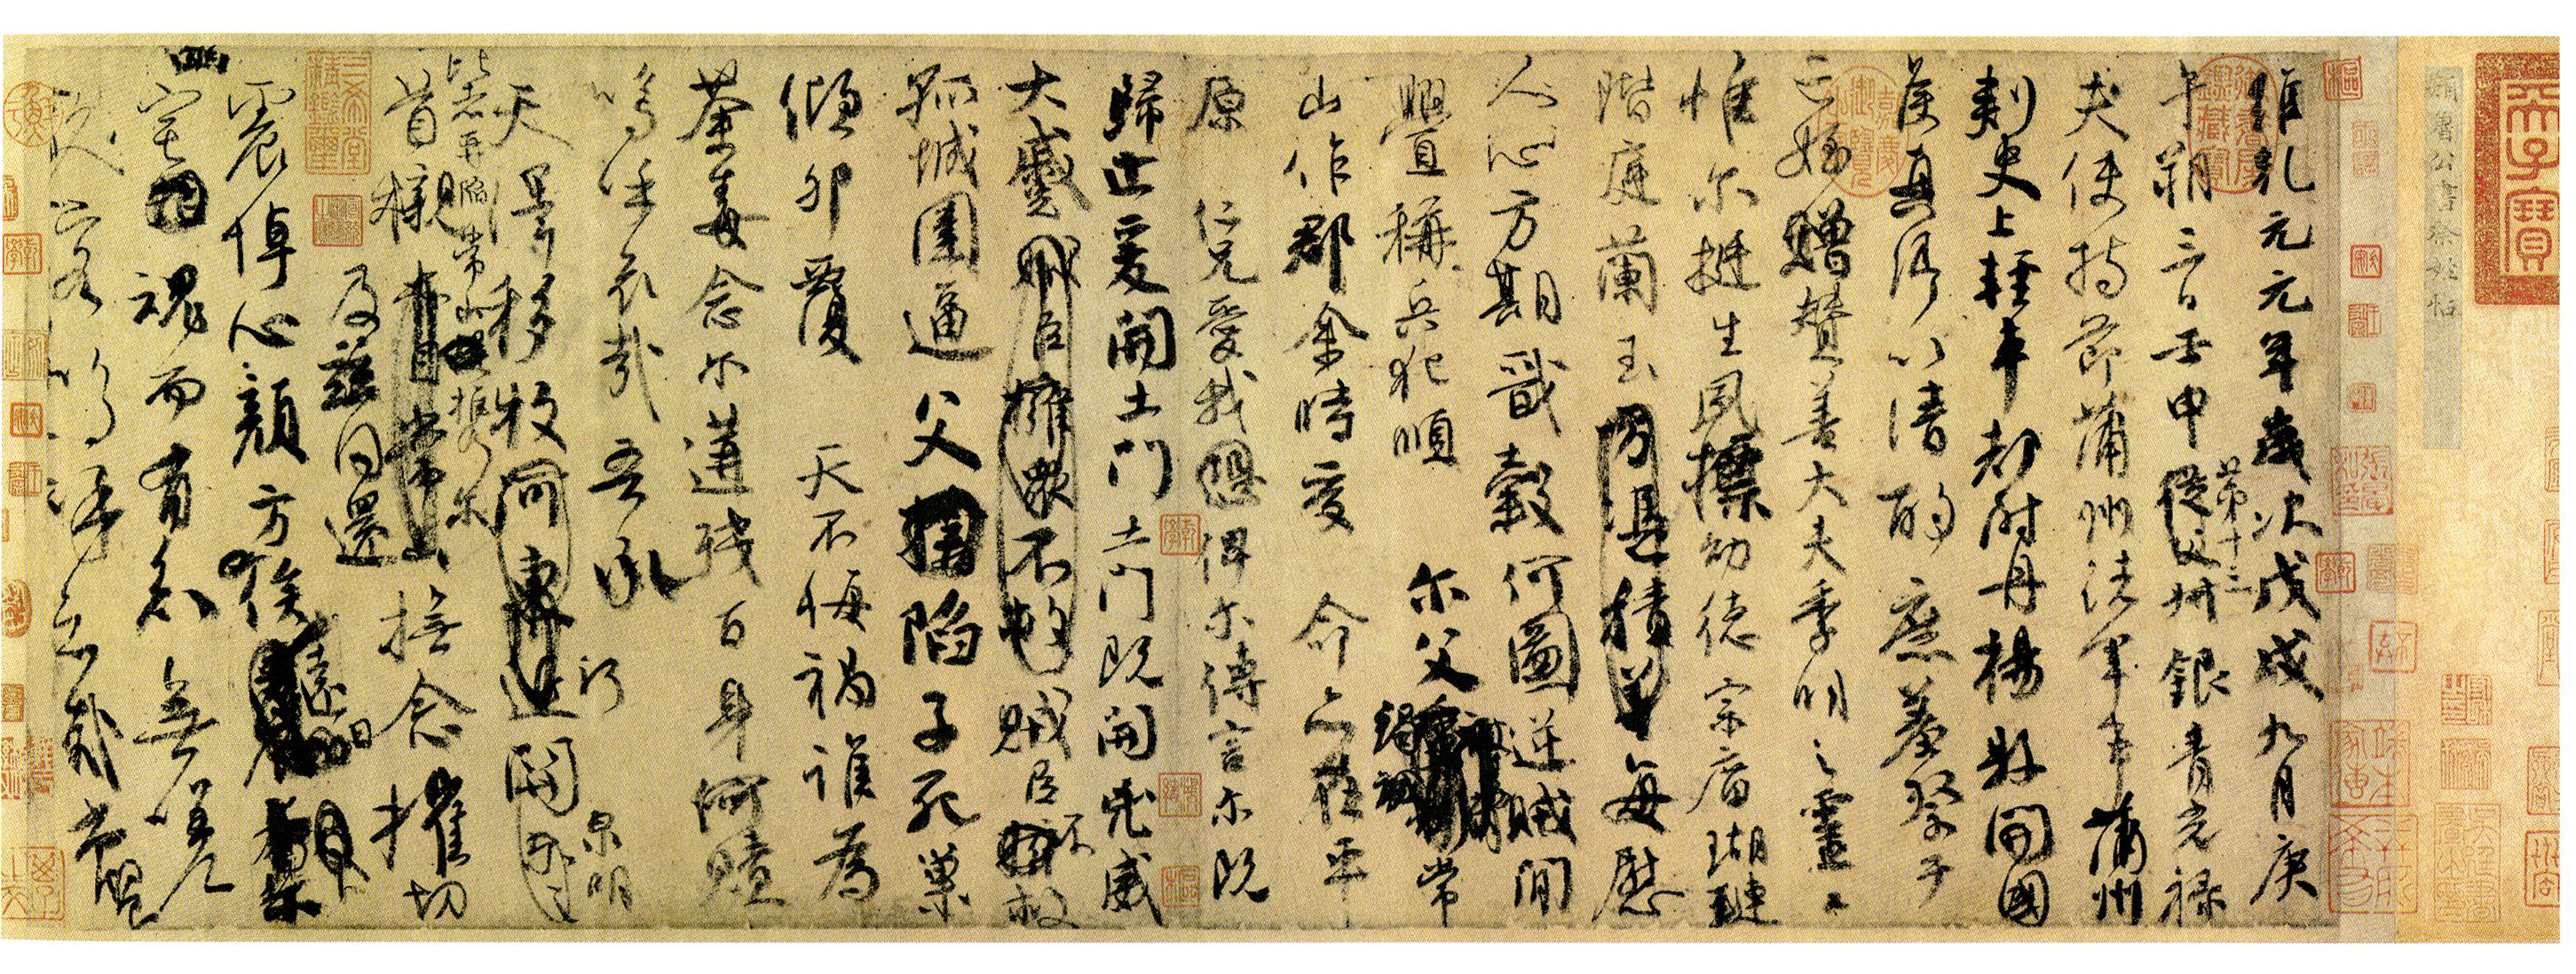 顏魯公書祭姪帖
維乾元元年歲次戊戌九月庚
午朔三日壬申第十三從父叔銀青光祿
夫使持節蒲州諸軍事蒲州
刺史上輕車都尉丹楊縣開國
侯真卿以清酌庶羞祭于
亡姪贈贊善大夫季明之靈曰
惟爾挺生夙標幼德宗廟瑚璉
階庭蘭玉方憑積善每慰
人心方期戩穀何圖逆賊閒
釁稱兵犯順爾父竭誠常
山作郡余時受命亦在平
原仁兄愛我恐俾爾傳言爾既
歸止爰開土門土門既開凶威
大蹙賊臣擁眾不救賊臣不救
孤城圍逼父陷子死巢
傾卵覆天不悔禍誰為
荼毒念爾遘殘百身何贖
嗚呼哀哉吾承
天澤移牧河東近河關泉明
比者再陷常山攜爾
首櫬及茲同還撫念摧切
震悼心顏方俟遠日
宅魂而有知無嗟
久客嗚呼哀哉尚饗